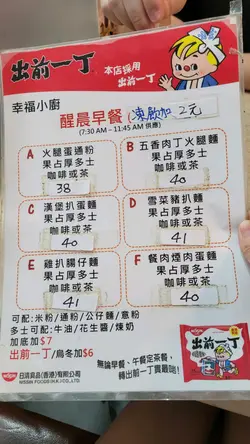 出前一丁
本店採用
出前一丁
幸福小廚
醒晨早餐 (凍飲加2元)
(7:30 AM – 11:45 AM 供應)
A 火腿蛋通粉
果占厚多士
咖啡或茶
38
B 五香肉丁火腿麵
果占厚多士
咖啡或茶
40
C 漢堡扒蛋麵
果占厚多士
咖啡或茶
40
D 雪菜豬扒麵
果占厚多士
咖啡或茶
41
E 雞扒腸仔麵
果占厚多士
咖啡或茶
41
F 餐肉煙肉蛋麵
果占厚多士
咖啡或茶
40
可配:米粉/通粉/公仔麵/意粉
多士可配:牛油/花生醬/煉奶
加底加$7
出前一丁/烏冬加$6
NISSIN
日清食品(香港)有限公司
NISSIN FOODS (H.K.) CO., LTD.
無論早餐、午餐定茶餐,
轉出前一丁實最啱!
出前一丁